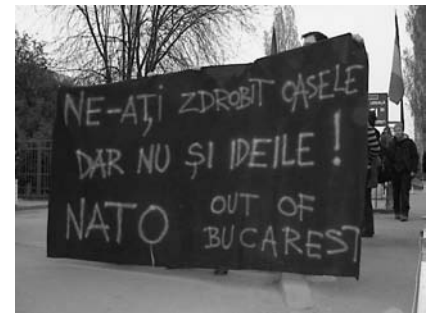 NE-AȚI ZDROBIT OASELE
DAR NU ȘI IDEILE !
NATO OUT OF
BUCAREST